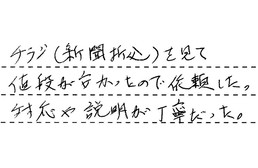 チラシ(新聞折込)を見て
値段が合かったので依頼した。
対応や説明が丁寧だった。